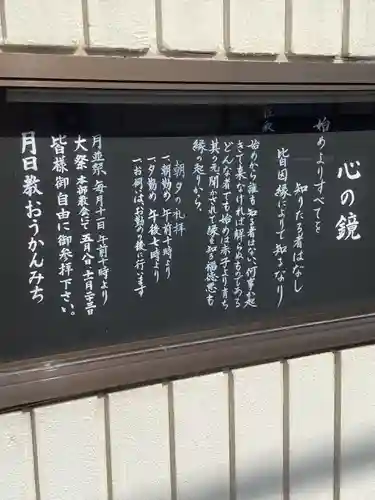 心の鏡
始めよりすべてを
知りたる者はなし
皆因縁によりて知るなり
始めから誰も知る者はない、何事が起
きて来なければ解らぬものである
どんな者でも始めは赤子より育ち
其の元聞かされて縁を知る福徳思も
縁の起りから。
朝夕の礼拝
一、朝勤め 午前十時より
一、夕勤め 午後七時より
一、お伺いは、お勤めの後に行います
月並祭 毎月十一日 午前十時より
大祭 本部教会にて 五月八日・十一月二十三日
皆様御自由に御参拝下さい。
月日教おうかんみち